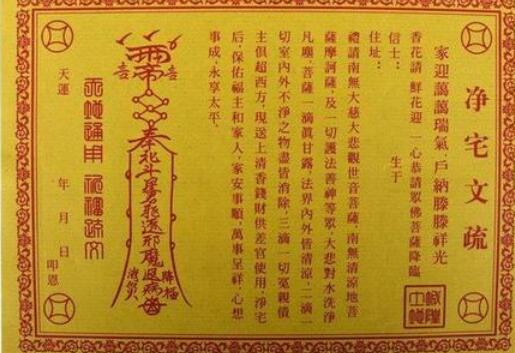 净宅文疏
家迎萬萬瑞氣,戶納滕滕祥光
香花請 鮮花迎 一心恭請眾佛菩薩降臨
信士: 生于
住址:
禮請南無大慈大悲觀世音菩薩,南無清涼地菩
薩摩訶薩,及一切護法善神等眾,大悲對水洗淨
凡塵,菩薩一滴真甘露,法界內外皆清涼,二滴一
切室內外不淨之物盡皆消除,三滴一切冤親債
主俱超西方,現送上清香錢財供差官使用,淨宅
后,保佑福主和家人,家安事順,萬事呈祥,心想
事成,永享太平,
喜 喜
奉北斗星君
邪魔退病
降福
天運 年 月 日 叩恩